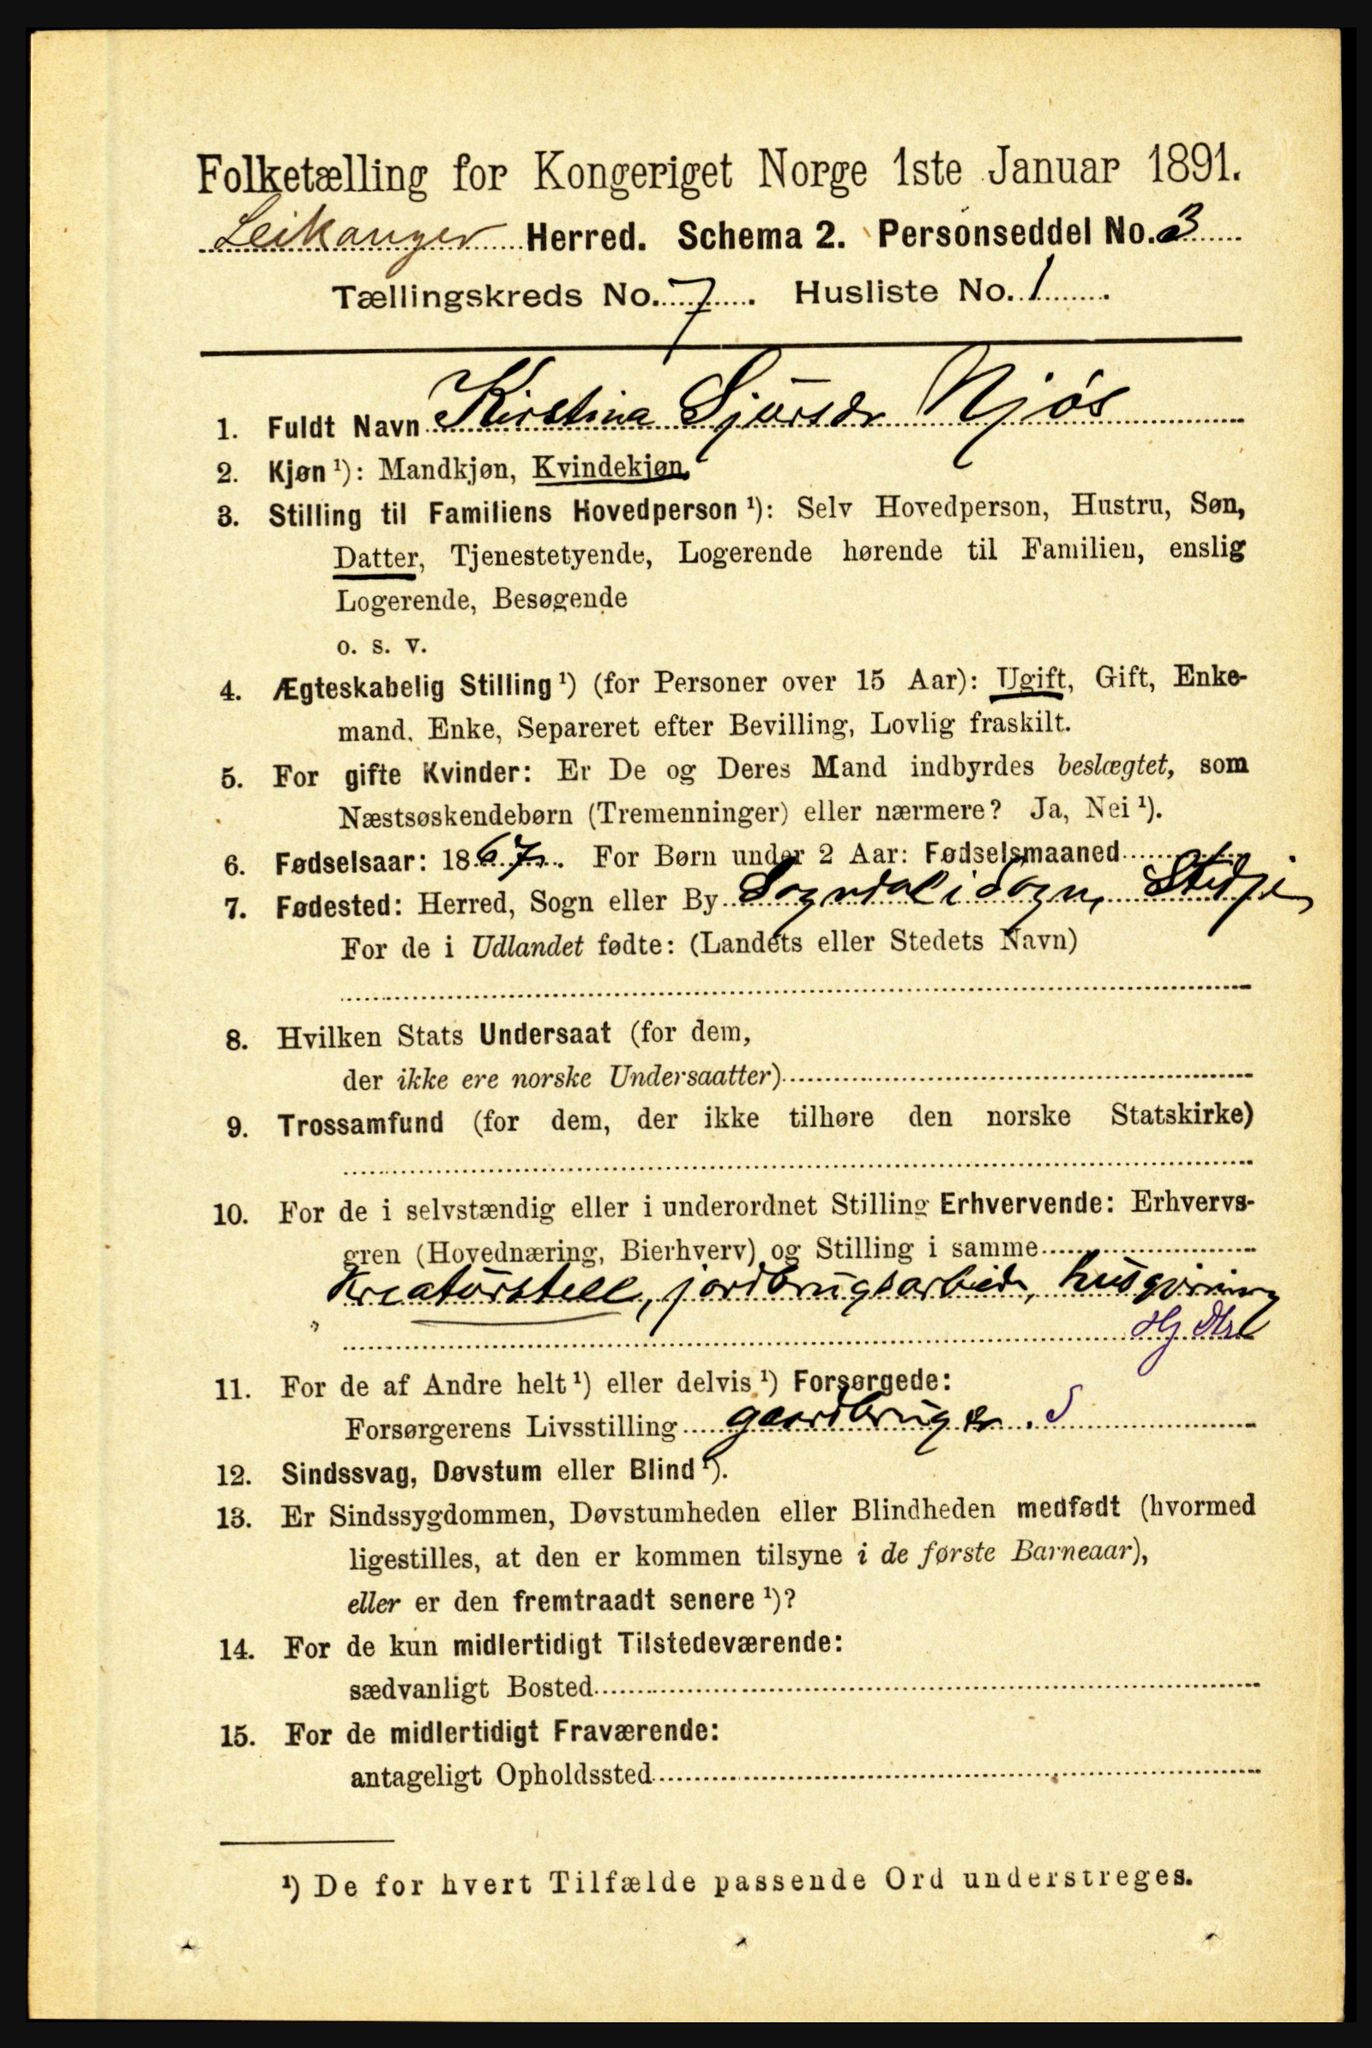 Folketælling for Kongeriget Norge 1ste Januar 1891.
Leikanger Herred. Schema 2. Personseddel No. 3
Tællingskreds No. 7. Husliste No. 1
1. Fuldt Navn Kirstina Sjursdr Njøs
2. Kjøn ¹): Mandkjøn, Kvindekjøn.
3. Stilling til Familiens Hovedperson ¹): Selv Hovedperson, Hustru, Søn,
Datter, Tjenestetyende, Logerende hørende til Familien, enslig
Logerende, Besøgende
o. s. v.
4. Ægteskabelig Stilling ¹) (for Personer over 15 Aar): Ugift, Gift, Enke-
mand, Enke, Separeret efter Bevilling, Lovlig fraskilt.
5. For gifte Kvinder: Er De og Deres Mand indbyrdes beslægtet, som
Næstsøskendebørn (Tremenninger) eller nærmere? Ja, Nei ¹).
6. Fødselsaar: 1867. For Børn under 2 Aar: Fødselsmaaned
7. Fødested: Herred, Sogn eller By Sogndal i Sogn, Stedje
For de i Udlandet fødte: (Landets eller Stedets Navn)
8. Hvilken Stats Undersaat (for dem,
der ikke ere norske Undersaatter)
9. Trossamfund (for dem, der ikke tilhøre den norske Statskirke)
10. For de i selvstændig eller i underordnet Stilling Erhvervende: Erhvervs-
gren (Hovednæring, Bierhverv) og Stilling i samme
Kreaturstell, jordbrugsarbeide, husgjirning
11. For de af Andre helt ¹) eller delvis ¹) Forsørgede:
Forsørgerens Livsstilling gaardbruger. S
12. Sindssvag, Døvstum eller Blind ¹).
13. Er Sindssygdommen, Døvstumheden eller Blindheden medfødt (hvormed
ligestilles, at den er kommen tilsyne i de første Barneaar),
eller er den fremtraadt senere ¹)?
14. For de kun midlertidigt Tilstedeværende:
sædvanligt Bosted
15. For de midlertidigt Fraværende:
antageligt Opholdssted
¹) De for hvert Tilfælde passende Ord understreges.